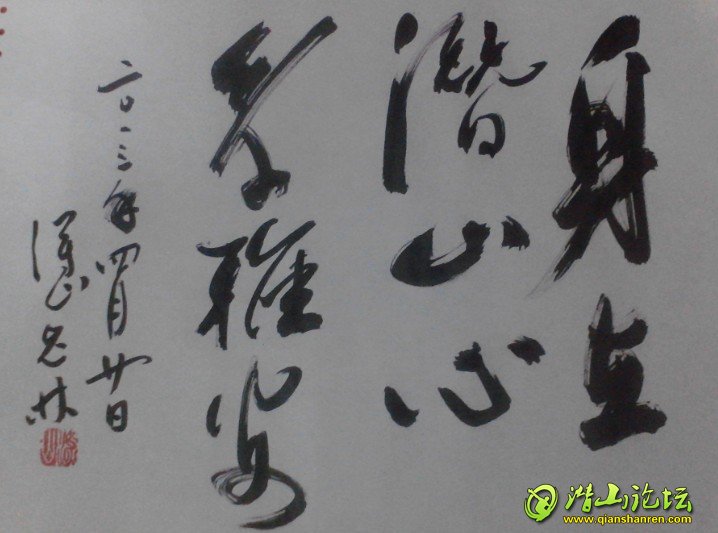 身在
潛山心
雅安
二〇一三年四月廿日
潜山 林
潜山论坛
www.qianshanren.com